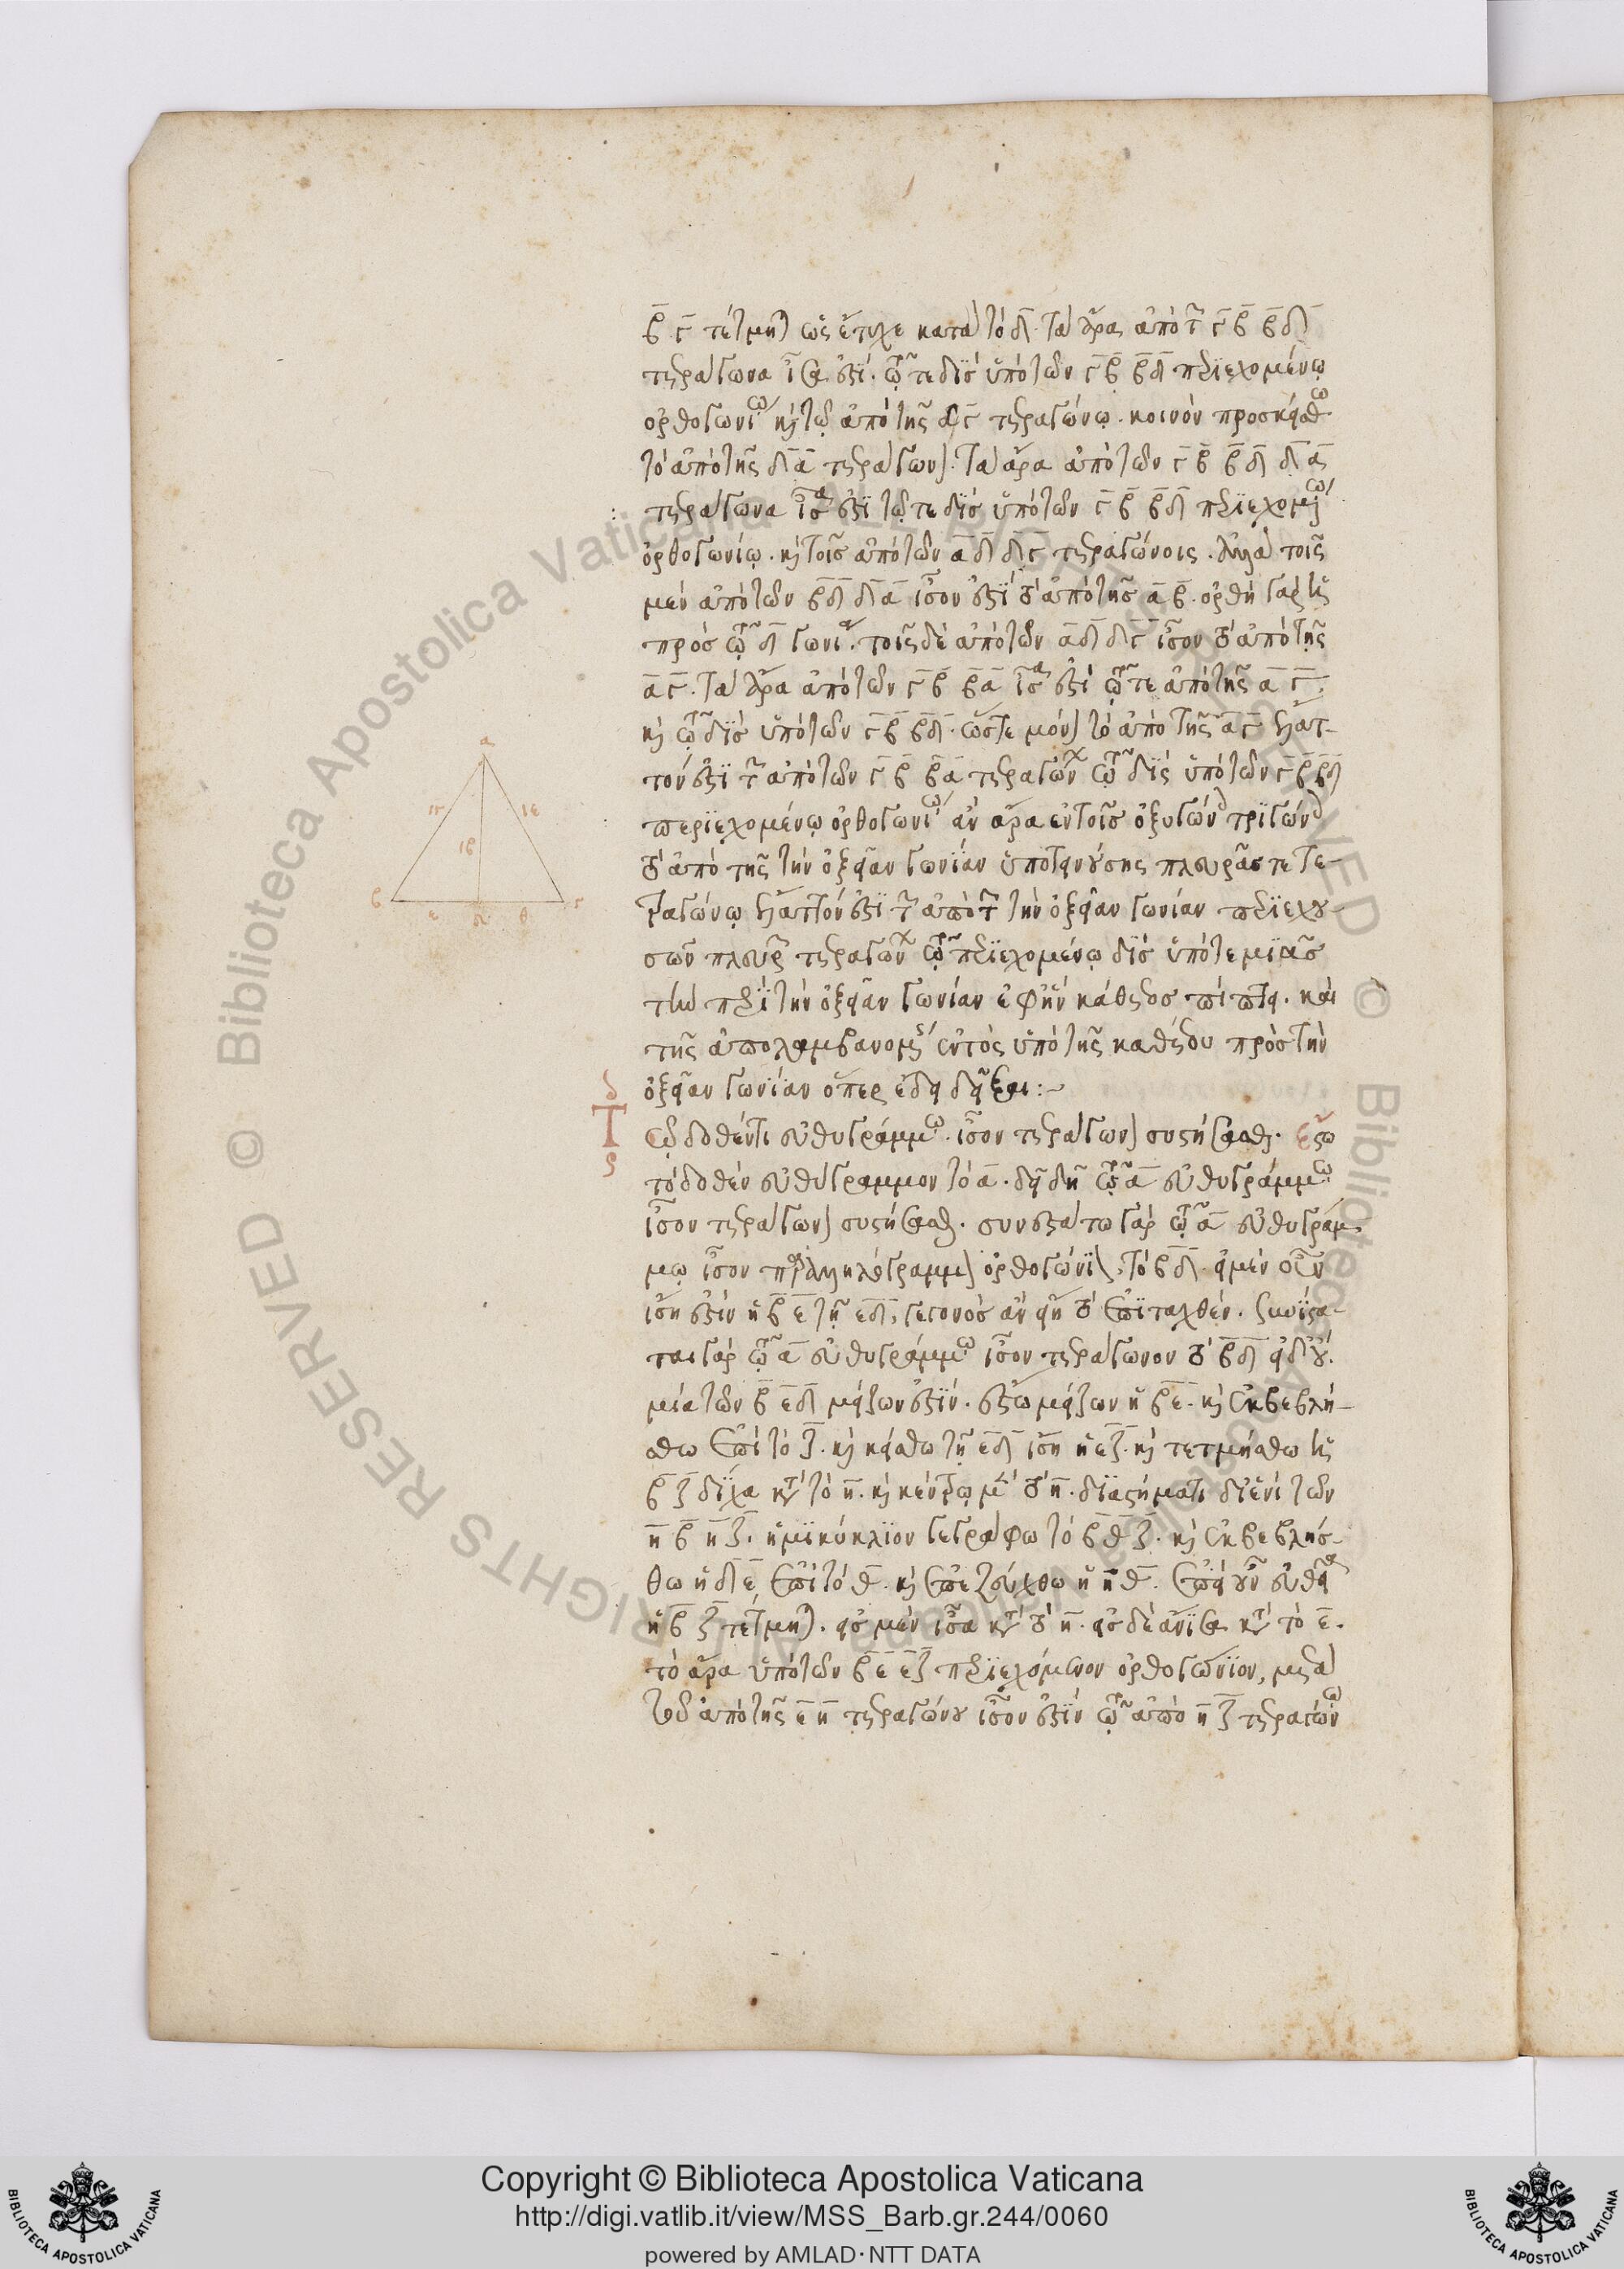 β γ τέτμηται ὡς ἔτυχε κατὰ τὸ δ. τὰ ἄρα ἀπὸ τῶν γ β β δ
τετράγωνα ἴσα ἐστὶ. τῷ τε δὶς ὑπὸ τῶν γ β β δ περιεχομένῳ
ὀρθογωνίῳ καὶ τῷ ἀπὸ τῆς δ γ τετραγώνῳ. κοινὸν προσκείσθω
τὸ ἀπὸ τῆς δ α τετράγωνον. τὰ ἄρα ἀπὸ τῶν γ β β δ δ α
τετράγωνα ἴσα ἐστὶ τῷ τε δὶς ὑπὸ τῶν γ β β δ περιεχομένῳ
ὀρθογωνίῳ. καὶ τοῖς ἀπὸ τῶν α δ δ γ τετραγώνοις. ἀλλὰ τοῖς
μὲν ἀπὸ τῶν β δ δ α ἴσον ἐστὶ τὸ ἀπὸ τῆς α β. ὀρθὴ γὰρ ἡ
πρὸς τῷ δ γωνία. τοῖς δὲ ἀπὸ τῶν α δ δ γ ἴσον τὸ ἀπὸ τῆς
α γ. τὰ ἄρα ἀπὸ τῶν γ β β α ἴσα ἐστὶ τῷ τε ἀπὸ τῆς α γ.
καὶ τῷ δὶς ὑπὸ τῶν γ β β δ. ὥστε μόνον τὸ ἀπὸ τῆς α γ ἔλατ-
τόν ἐστι τῶν ἀπὸ τῶν γ β β α τετραγώνων τῷ δὶς ὑπὸ τῶν γ β β δ
περιεχομένῳ ὀρθογωνίῳ ἐν ἄρα ἐν τοῖς ὀξυγωνίοις τριγώνοις
τὸ ἀπὸ τῆς τὴν ὀξεῖαν γωνίαν ὑποτεινούσης πλευρᾶς τε τε-
τραγώνῳ ἔλαττόν ἐστι τῶν ἀπὸ τῶν τὴν ὀξεῖαν γωνίαν περιεχου-
σῶν πλευρῶν τετραγώνων τῷ περιεχομένῳ δὶς ὑπό τε μιᾶς
τῶν περὶ τὴν ὀξεῖαν γωνίαν ἐφ' ἣν κάθετος πίπτει. καὶ
τῆς ἀπολαμβανομένης ἐντὸς ὑπὸ τῆς καθέτου πρὸς τὴν
ὀξεῖαν γωνίαν ὅπερ ἔδει δεῖξαι :~
Τῷ δοθέντι εὐθυγράμμῳ. ἴσον τετράγωνον συστήσασθαι. ἔστω
τὸ δοθὲν εὐθύγραμμον τὸ α. δεῖ δὴ τῷ α εὐθυγράμμῳ
ἴσον τετράγωνον συστήσασθαι. συνεστάτω γὰρ τῷ α εὐθυγράμ-
μῳ ἴσον παραλληλόγραμμον ὀρθογώνιον. τὸ β δ. εἰ μὲν οὖν
ἴση ἐστὶν ἡ β ε τῇ ε δ, γεγονὸς ἂν εἴη τὸ ἐπιταχθέν. συνίστα-
ται γὰρ τῷ α εὐθυγράμμῳ ἴσον τετράγωνον τὸ β δ εἰ δὲ οὔ.
μία τῶν β ε δ μείζων ἐστίν. ἔστω μείζων ἡ β ε. καὶ ἐκβεβλή-
σθω ἐπὶ τὸ ζ. καὶ κείσθω τῇ ε δ ἴση ἡ ε ζ. καὶ τετμήσθω ἡ
β ζ δίχα κατὰ τὸ η. καὶ κέντρῳ μὲν τὸ η. διαστήματι δὲ ἑνὶ τῶν
η β η ζ. ἡμικύκλιον γεγράφθω τὸ β θ ζ. καὶ ἐκβεβλήσ-
θω ἡ δ ε ἐπὶ τὸ θ. καὶ ἐπεζεύχθω ἡ η θ. ἐπεὶ οὖν εὐθεῖα
ἡ β ζ τέτμηται. εἰς μὲν ἴσα κατὰ τὸ η. εἰς δὲ ἄνισα κατὰ τὸ ε.
τὸ ἄρα ὑπὸ τῶν β ε ε ζ περιεχόμενον ὀρθογώνιον, μετὰ
τοῦ ἀπὸ τῆς ε η τετραγώνου ἴσον ἐστὶν τῷ ἀπὸ η ζ τετραγώνῳ
α
ιγ
ιε
ιβ
β
ε
δ
θ
γ
Copyright © Biblioteca Apostolica Vaticana
http://digi.vatlib.it/view/MSS_Barb.gr.244/0060
powered by AMLAD·NTT DATA
BIBLIOTECA APOSTOLICA VATICANA
BIBLIOTECA APOSTOLICA VATICANA